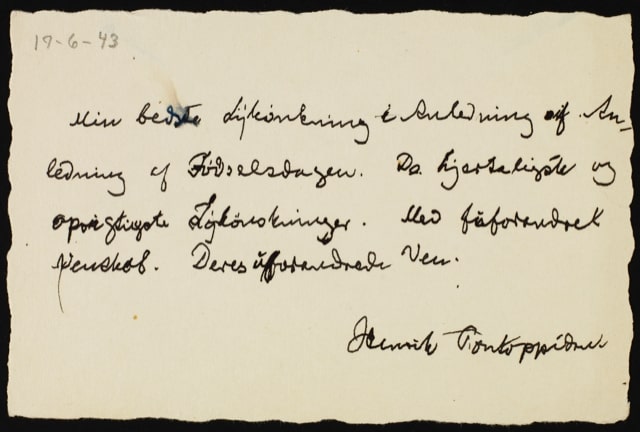 17-6-43
Min bedste Lykönskning i Anledning af An-
ledning af Födselsdagen. De hjerteligste og
oprigtigste Lykönskninger. Med uforandret
Venskab. Deres uforandrede Ven.
Henrik Pontoppidan